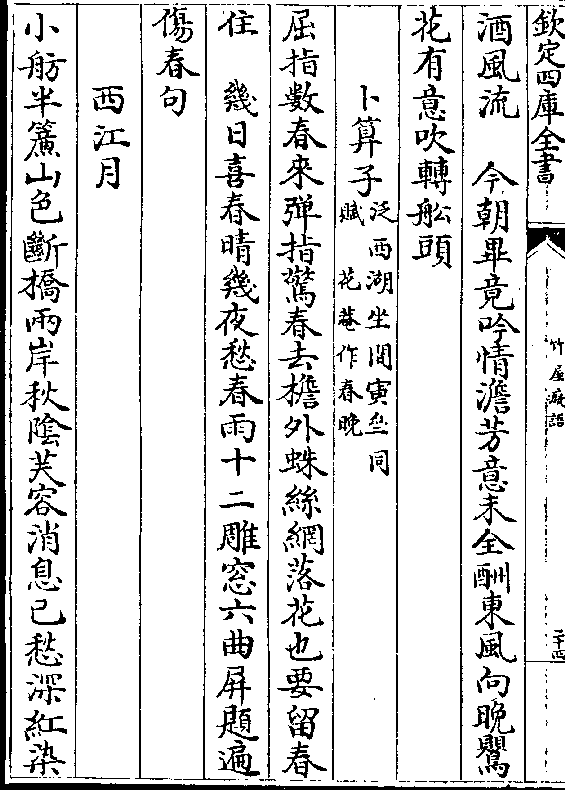 欽定四庫全書
竹屋癡語
二十四
酒風流　今朝畢竟吟情澹芳意未全酬東風向晚鸎
花有意吹轉舩頭
卜算子
泛西湖坐間寅亝同
賦花菴作春晚
屈指數春來弹指驚春去檐外蛛絲網落花也要留春
住　幾日喜春晴幾夜愁春雨十二雕窓六曲屏題遍
傷春句
西江月
小舫半簾山色斷橋兩岸秋陰芙容消息已愁深紅染